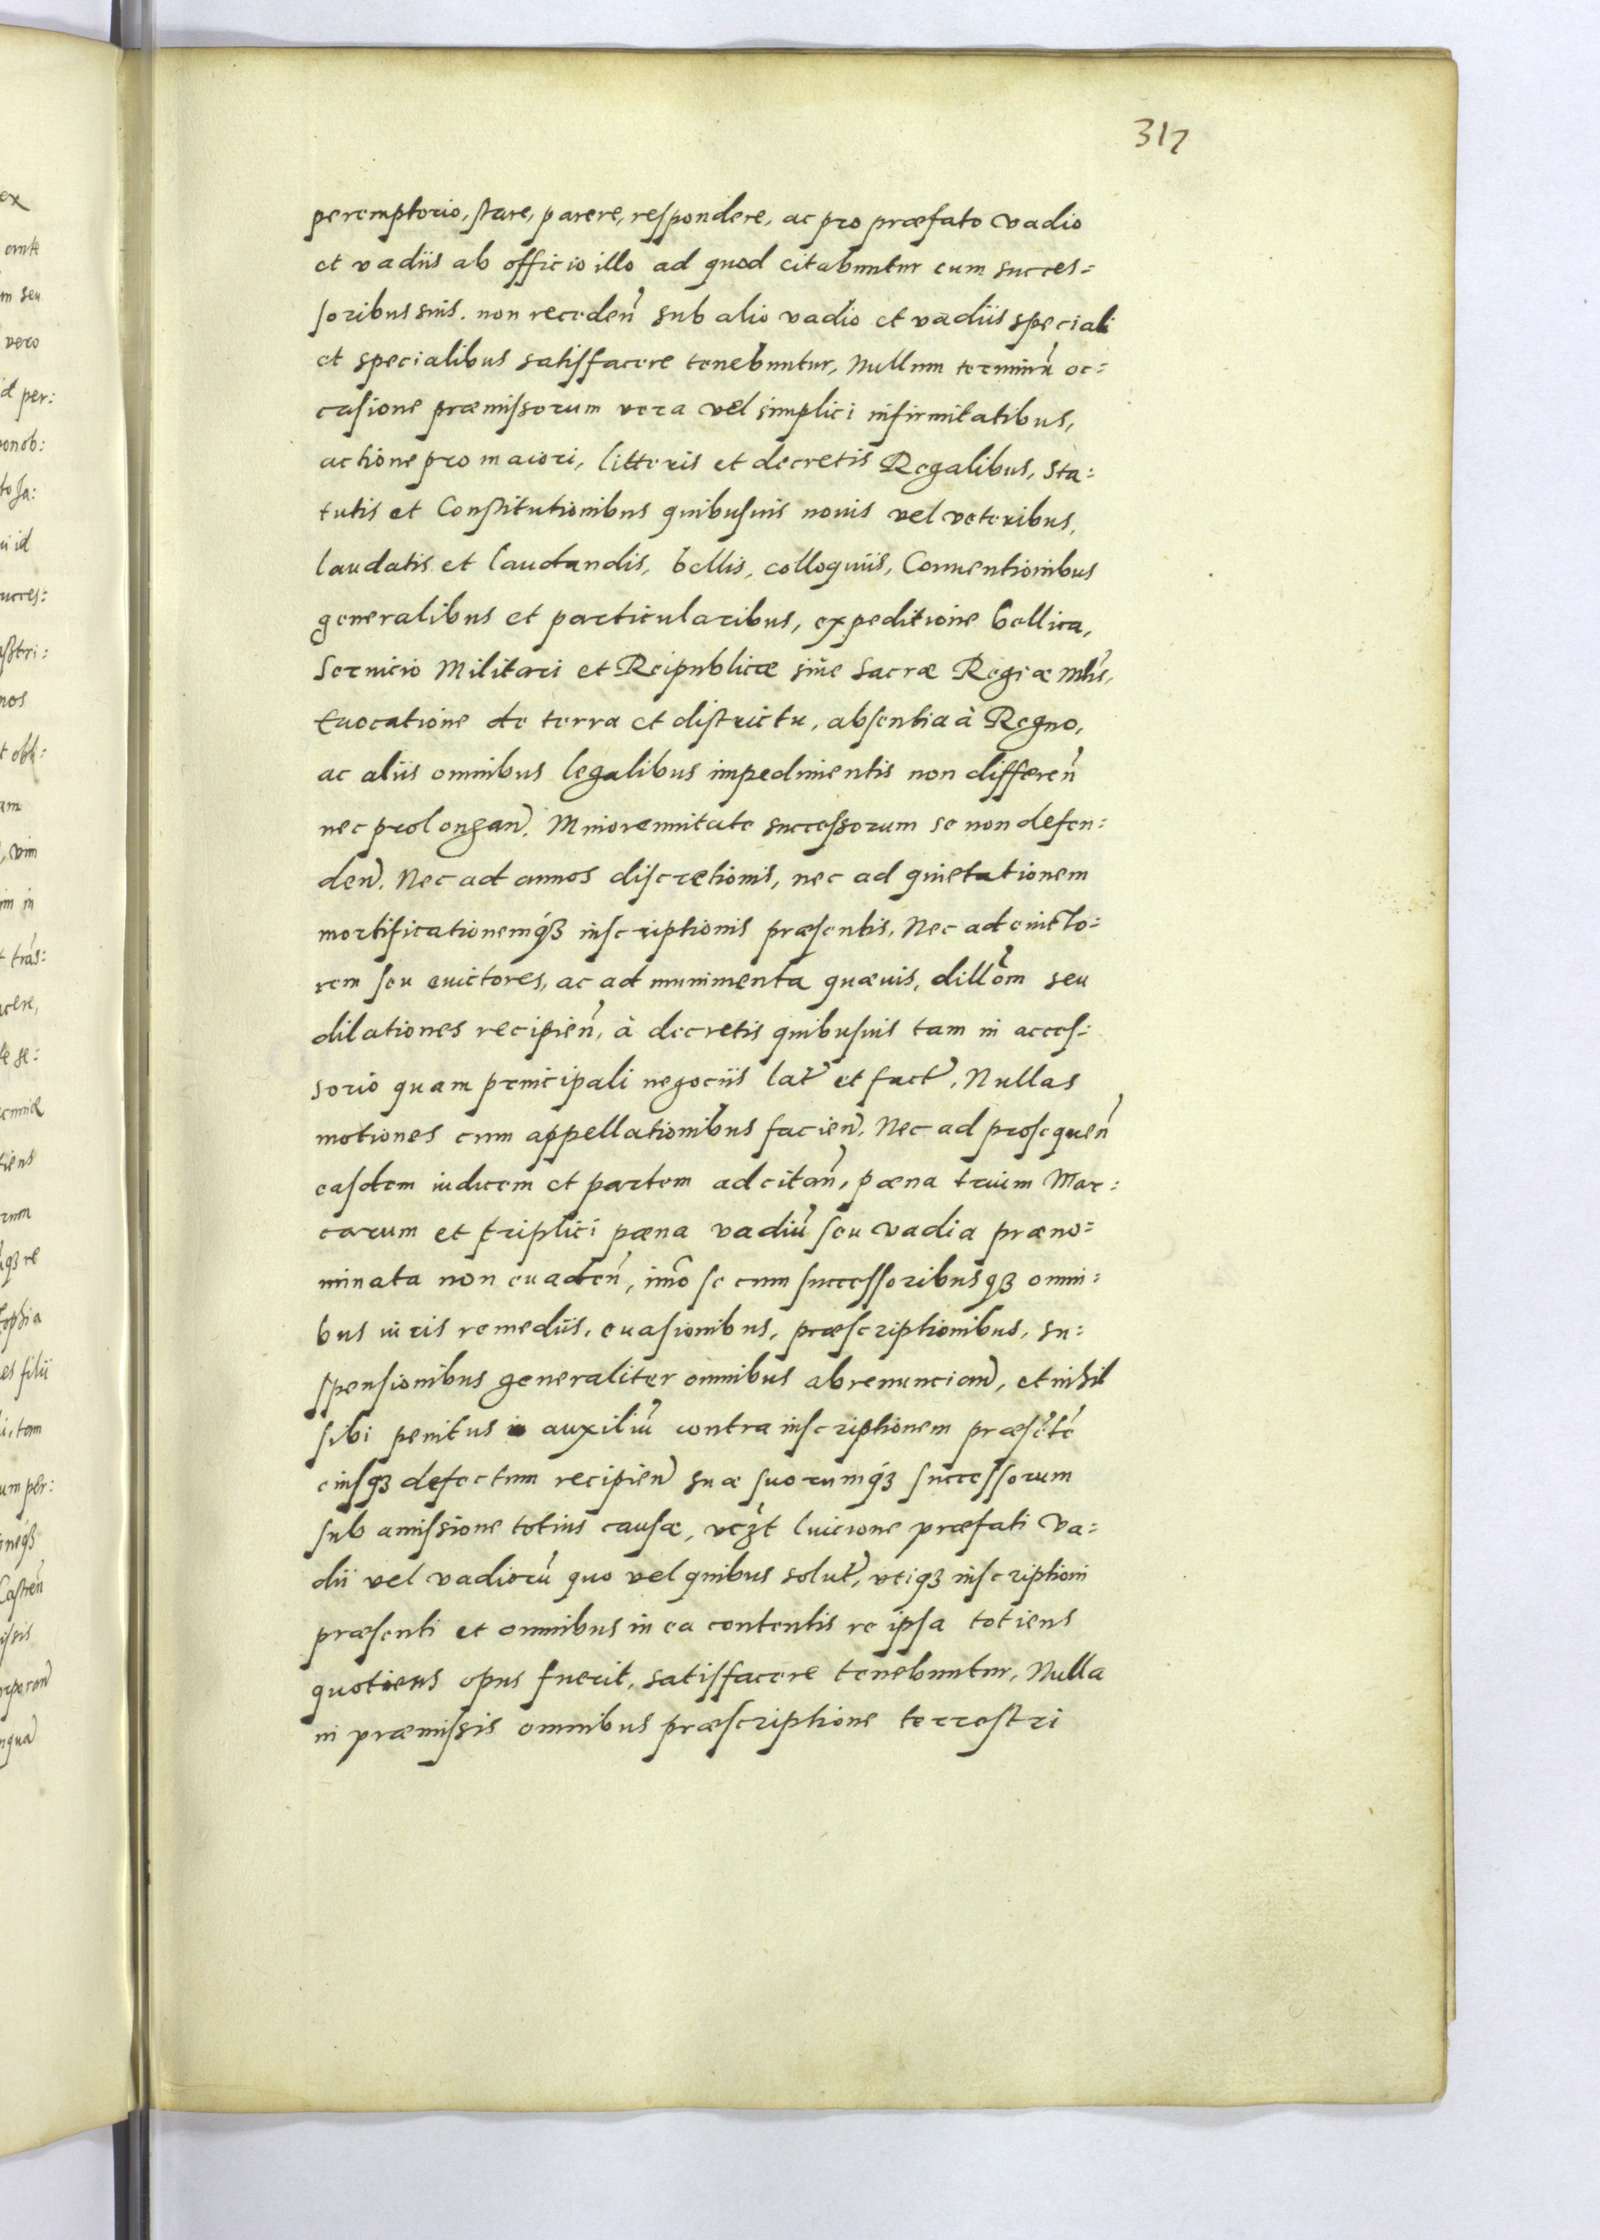 317
peremptorio, stare, parere, respondere, ac pro præfato vadio
et vadiis ab officio illo ad quod citabuntur cum succes=
soribus suis. non receden̄ sub alio vadio et vadiis speciali
et specialibus satisfacere tenebuntur, Nullum terminū oc=
casione præmissorum vera vel simplici infirmitatibus,
actione pro maiori, litteris et decretis Regalibus, Sta=
tutis et Constitutionibus quibusuis nouis vel veteribus,
laudatis et laudandis, bellis, colloquiis, Conuentionibus
generalibus et particularibus, expeditione bellica,
Seruicio Militari et Reipublicæ siue Sacræ Regiæ Mtis,
Euocatione de terra et districtu, absentia à Regno,
ac aliis omnibus legalibus impedimentis non differen̄
nec prolongan̄. Minorennitate successorum se non defen=
den̄. Nec ad annos discretionis, nec ad quietationem
mortificationemq́ꝫ inscriptionis præsentis, Nec ad euicto=
rem seu euictores, ac ad munimenta quæuis, dillōm seu
dilationes recipien̄, à decretis quibusuis tam in acces=
sorio quam principali negociis lat̄ et fact̄, Nullas
motiones cum appellationibus facien̄. Nec ad prosequen̄
easdem iudicem et partem ad citan̄, pæna trium Mar=
carum et triplici pæna vadiū seu vadia præno=
minata non euaden̄, imo se cum successoribusqꝫ omni=
bus iuris remediis, euasionibus, præscriptionibus, su=
spensionibus generaliter omnibus abrenuncian̄, et nihil
sibi penitus in auxiliū contra inscriptionem præsētē
eiusqꝫ defectum recipien̄ suæ suorumq́ꝫ successorum
sub amissione totius causæ, vczt luicione præfati va=
dii vel vadiorū quo vel quibus solut̄, vtiqꝫ inscriptioni
præsenti et omnibus in ea contentis re ipsa totiens
quotiens opus fuerit, satisfacere tenebuntur, Nulla
in præmissis omnibus præscriptione terrestri